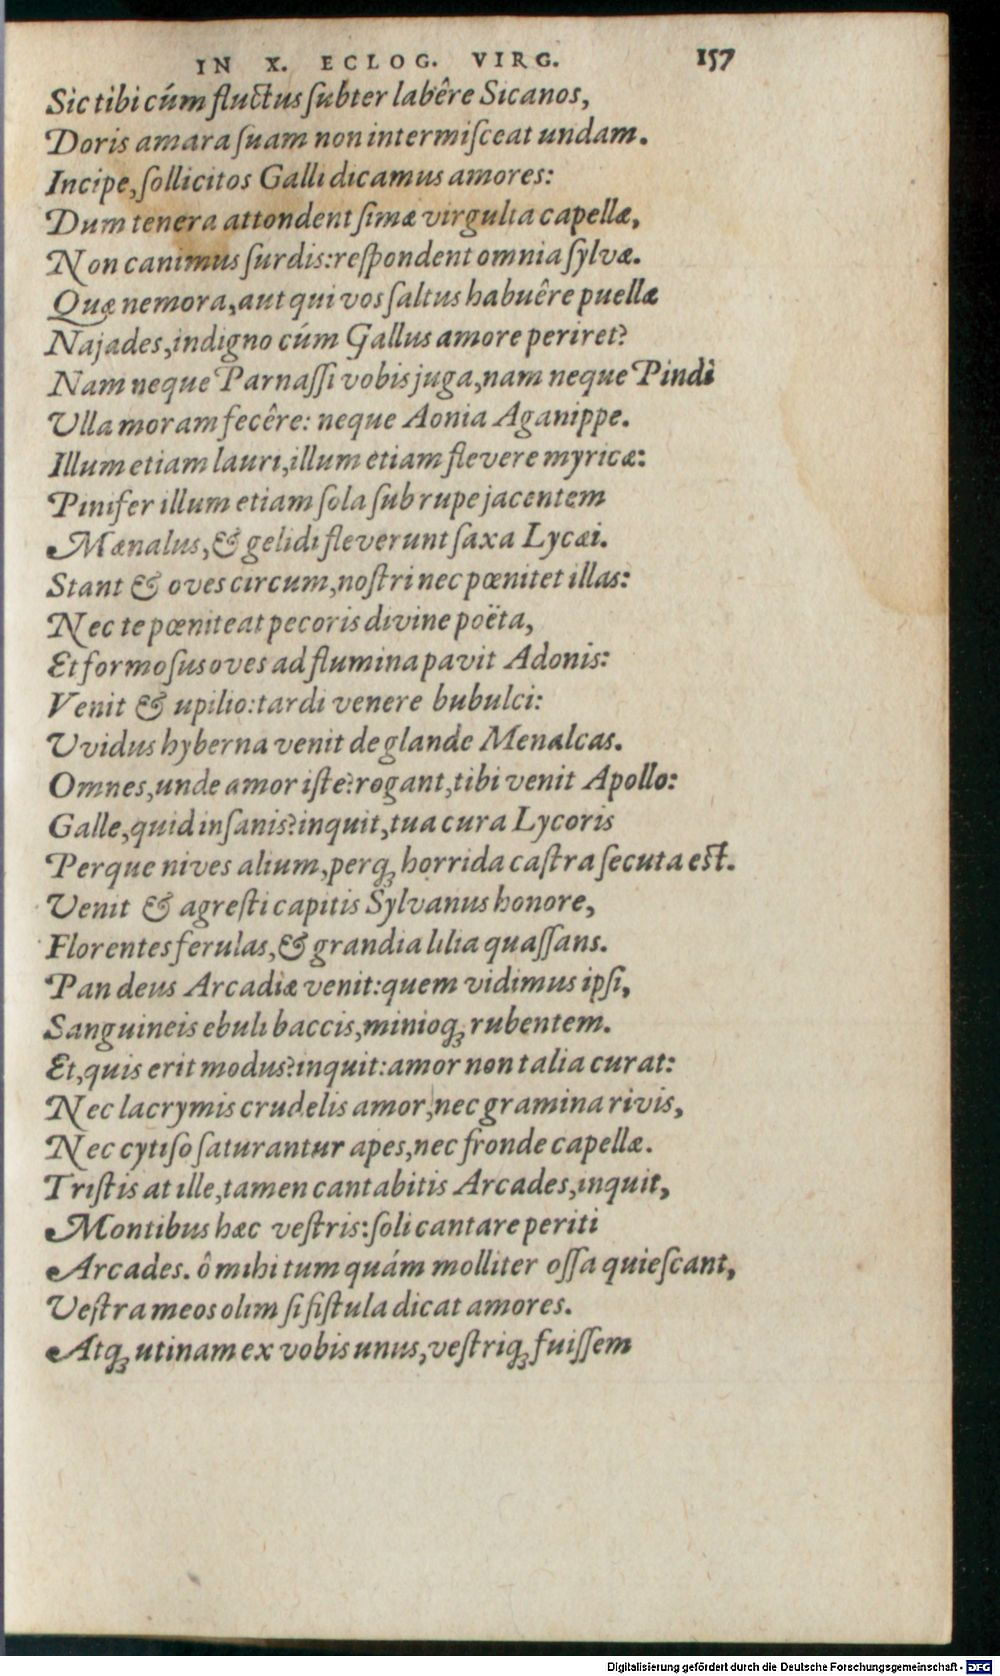 IN X. ECLOG. VIRG. 157
Sic tibi cúm fluctus ſubter labêre Sicanos,
Doris amara ſuam non intermiſceat undam.
Incipe, ſollicitos Galli dicamus amores:
Dum tenera attondent ſimæ virgulta capellæ,
Non canimus ſurdis: reſpondent omnia ſylvæ.
Quæ nemora, aut qui vos ſaltus habuêre puellæ
Najades, indigno cúm Gallus amore periret?
Nam neque Parnaſſi vobis juga, nam neque Pindi
Ulla moram fecêre: neque Aonia Aganippe.
Illum etiam lauri, illum etiam flevere myricæ:
Pinifer illum etiam ſola ſub rupe jacentem
Mænalus, & gelidi fleverunt ſaxa Lycæi.
Stant & oves circum, noſtri nec pœnitet illas:
Nec te pœniteat pecoris divine poëta,
Et formoſus oves ad flumina pavit Adonis:
Venit & upilio: tardi venere bubulci:
Uvidus hyberna venit de glande Menalcas.
Omnes, unde amor iſte? rogant, tibi venit Apollo:
Galle, quid inſanis? inquit, tua cura Lycoris
Perque nives alium, perq; horrida caſtra ſecuta eſt.
Venit & agreſti capitis Sylvanus honore,
Florentes ferulas, & grandia lilia quaſſans.
Pan deus Arcadiæ venit: quem vidimus ipſi,
Sanguineis ebuli baccis, minioq; rubentem.
Et, quis erit modus? inquit: amor non talia curat:
Nec lacrymis crudelis amor, nec gramina rivis,
Nec cytiſo ſaturantur apes, nec fronde capellæ.
Triſtis at ille, tamen cantabitis Arcades, inquit,
Montibus hæc veſtris: ſoli cantare periti
Arcades. ô mihi tum quám molliter oſſa quieſcant,
Veſtra meos olim ſi fiſtula dicat amores.
Atq; utinam ex vobis unus, veſtriq; fuiſſem
Digitalisierung gefördert durch die Deutsche Forschungsgemeinschaft - DFG